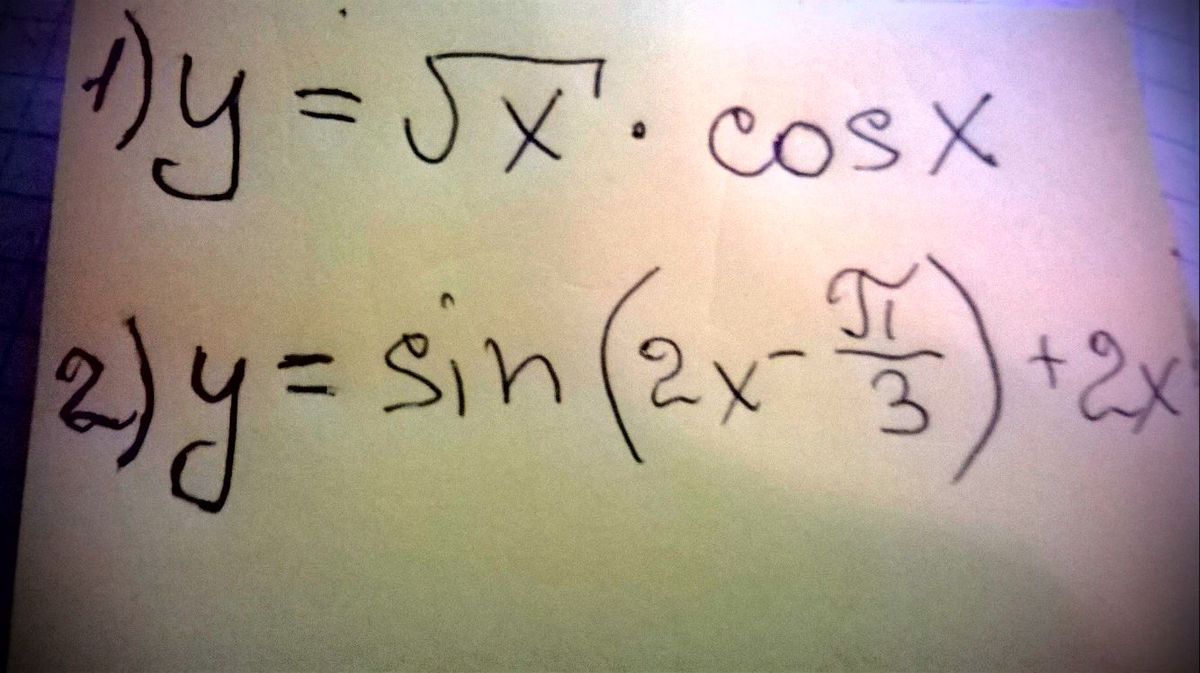 1) y = √x · cosx
2) y = sin(2x - π/3) + 2x